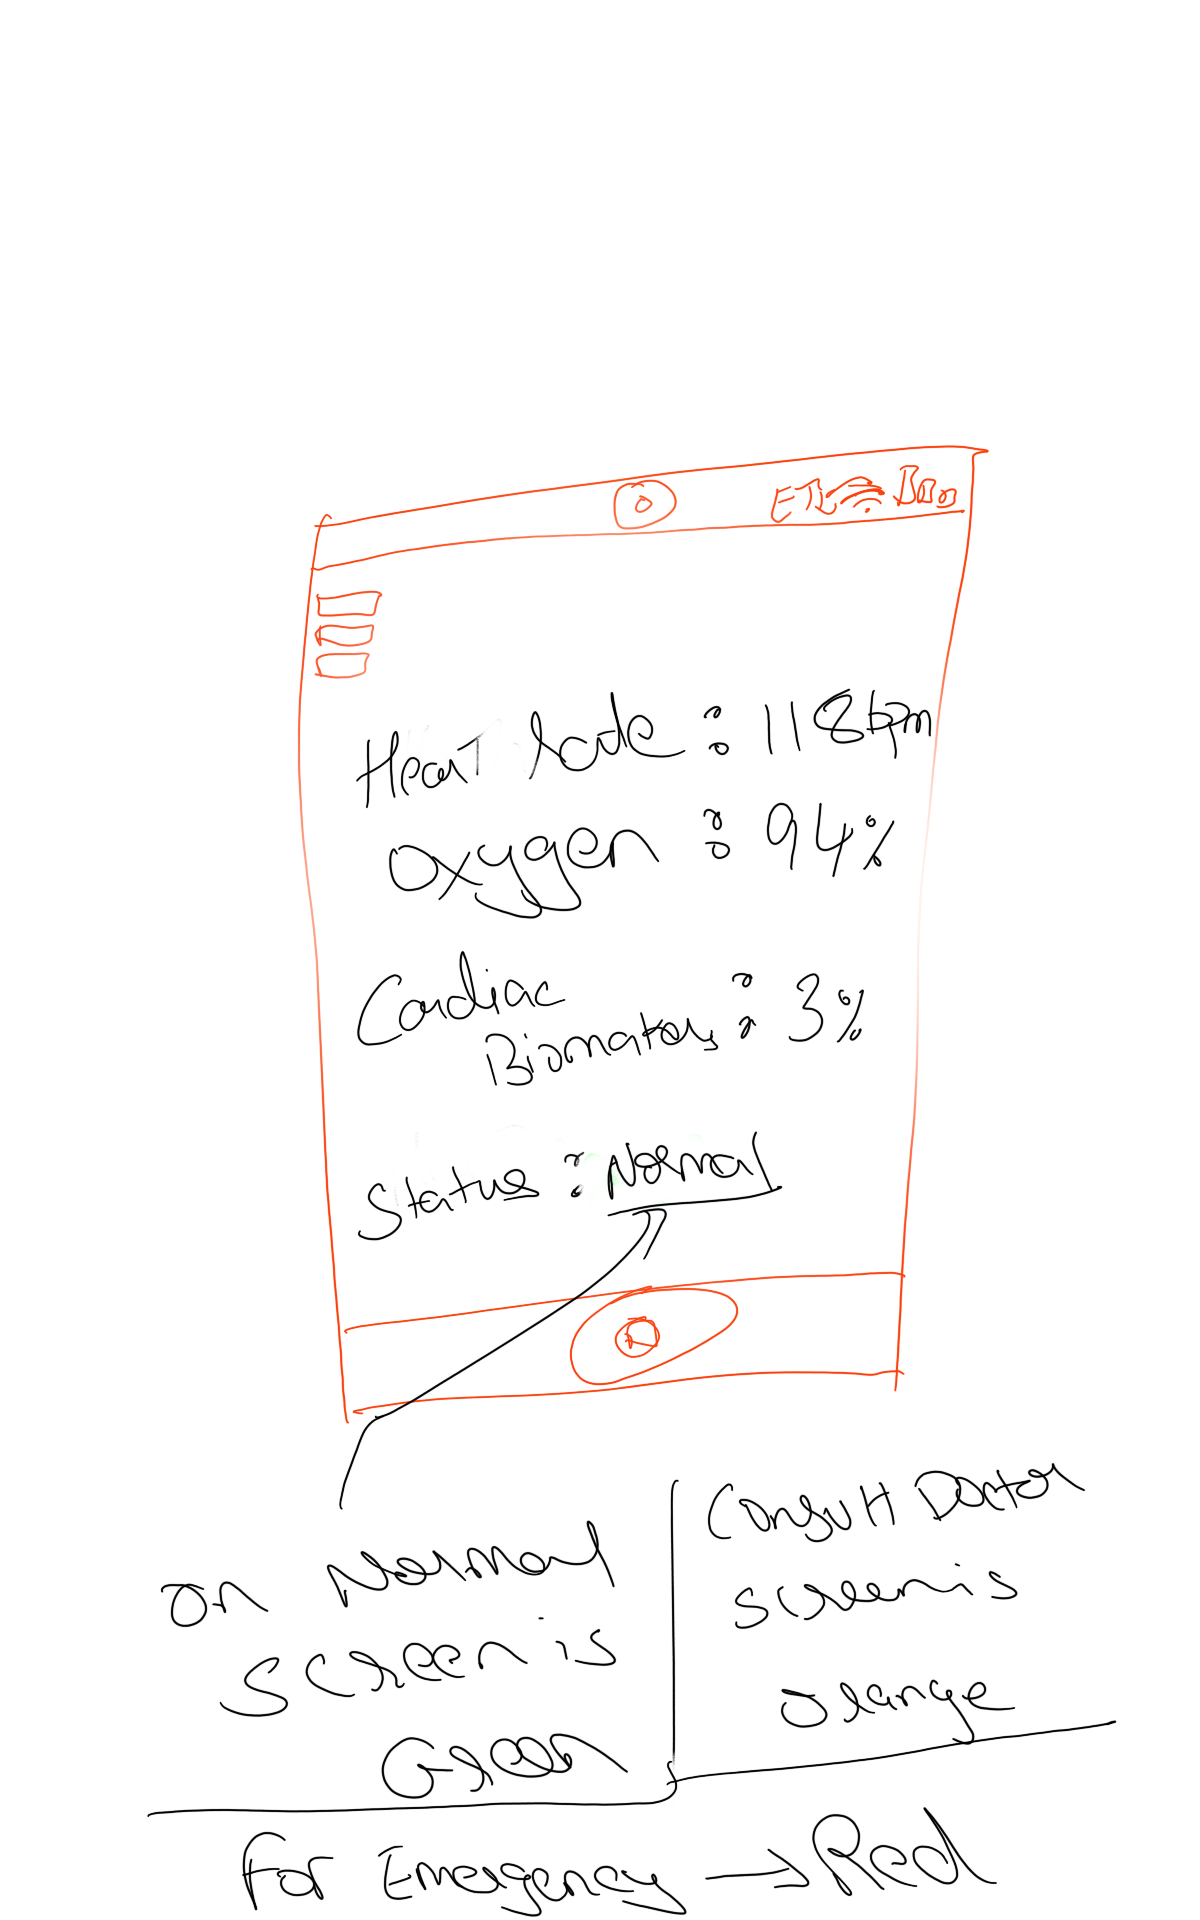 Heart Rate : 118bpm
Oxygen : 94%
Cardiac
Biomakers : 3%
Status : Normal
on Normal
screen is
Green
Consult Doctor
screen is
orange
For Emergency → Red